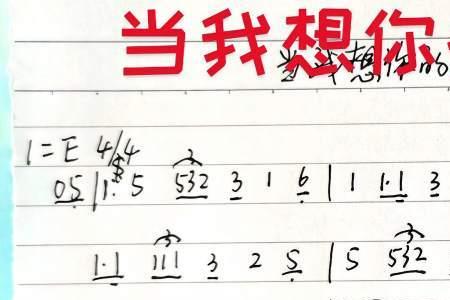 当我想你
当我想你的
1=E 4/4
05 | 1· 5 532 3 1 6 | 1 1·1 3
1·1 111 3 2 5 | 5 532